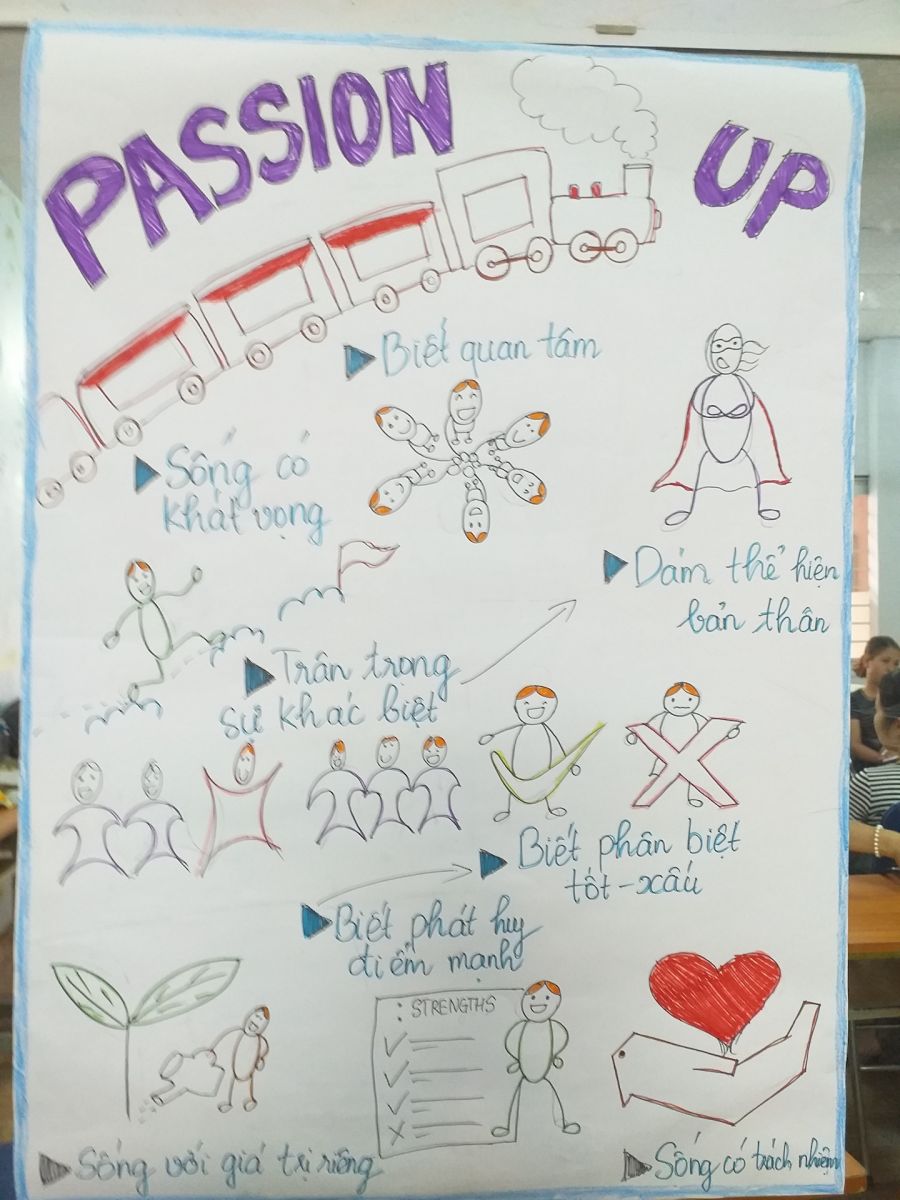 PASSION UP
Biết quan tâm
Sống có
khát vọng
Dám thể hiện
bản thân
Trân trong
sự khác biệt
Biết phân biệt
tốt - xấu
Biết phát huy
điểm mạnh
: STRENGTHS
Sống với giá trị riêng
Sống có trách nhiệm